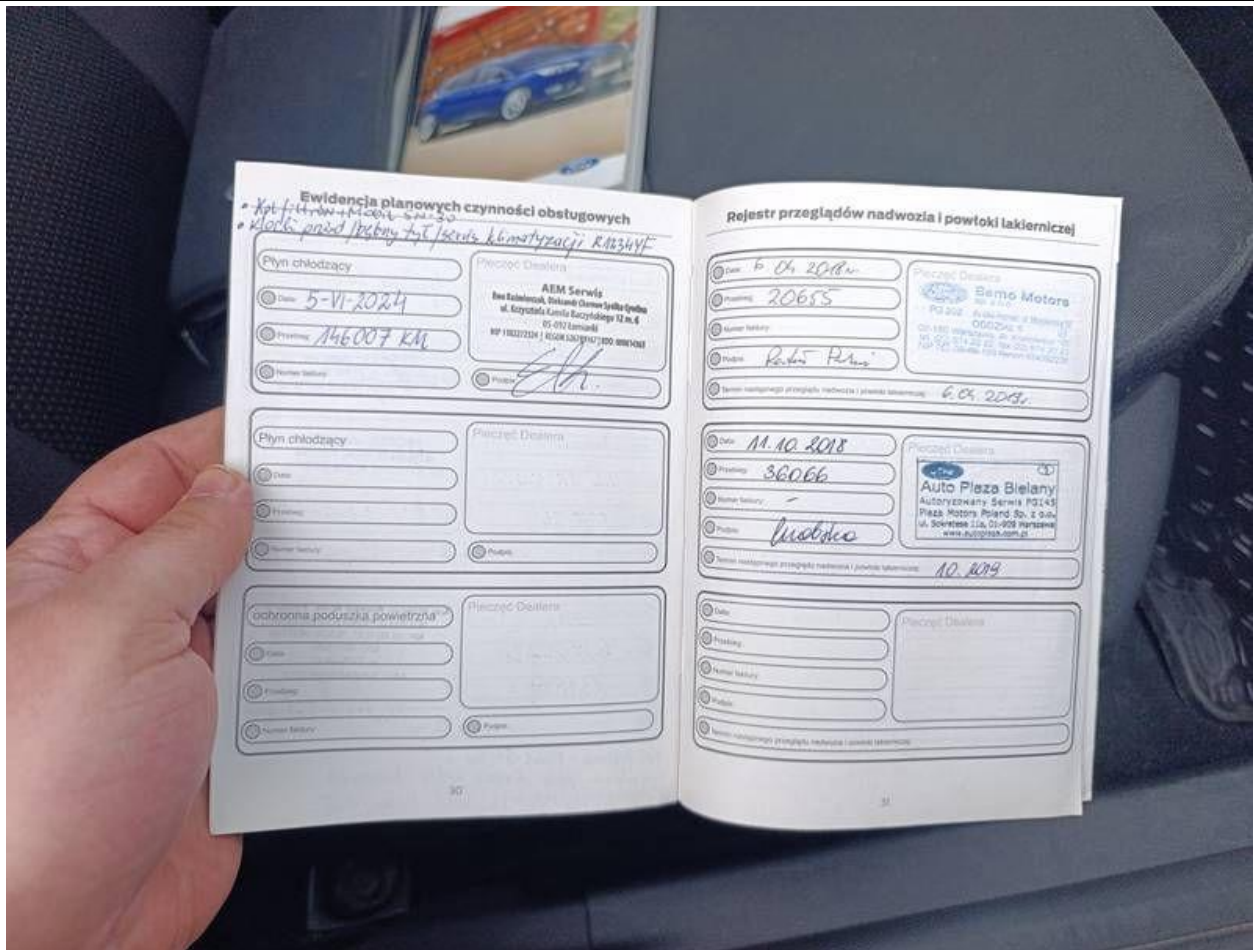 Ewidencja planowych czynności obsługowych
• Kpl filtrów + Mobil 5W-30
• klocki przód / bębny tył / serwis klimatyzacji R1234YF
Płyn chłodzący
Pieczęć Dealera
Data: 5-VI-2024
Przebieg: 146007 KM
Numer faktury:
AEM Serwis
ul. Krzysztofa Kamila Baczyńskiego 12 m. 6
05-092 Łomianki
Podpis:
Płyn chłodzący
Pieczęć Dealera
Data:
Przebieg:
Numer faktury:
Podpis:
ochronna poduszka powietrzna
Pieczęć Dealera
Data:
Przebieg:
Numer faktury:
Podpis:
30
Rejestr przeglądów nadwozia i powłoki lakierniczej
Data: 6.04.2018r.
Przebieg: 20655
Numer faktury:
Podpis:
Pieczęć Dealera
Ford
Bemo Motors
Termin następnego przeglądu nadwozia i powłoki lakierniczej: 6.04.2019r.
Data: 11.10.2018
Przebieg: 36066
Numer faktury: -
Podpis:
Pieczęć Dealera
Ford
Auto Plaza Bielany
Autoryzowany Serwis PG145
Plaza Motors Poland Sp. z o.o.
ul. Sokratesa 11a, 01-909 Warszawa
www.autoplaza.com.pl
Termin następnego przeglądu nadwozia i powłoki lakierniczej: 10.2019
Data:
Przebieg:
Numer faktury:
Podpis:
Pieczęć Dealera
Termin następnego przeglądu nadwozia i powłoki lakierniczej:
31